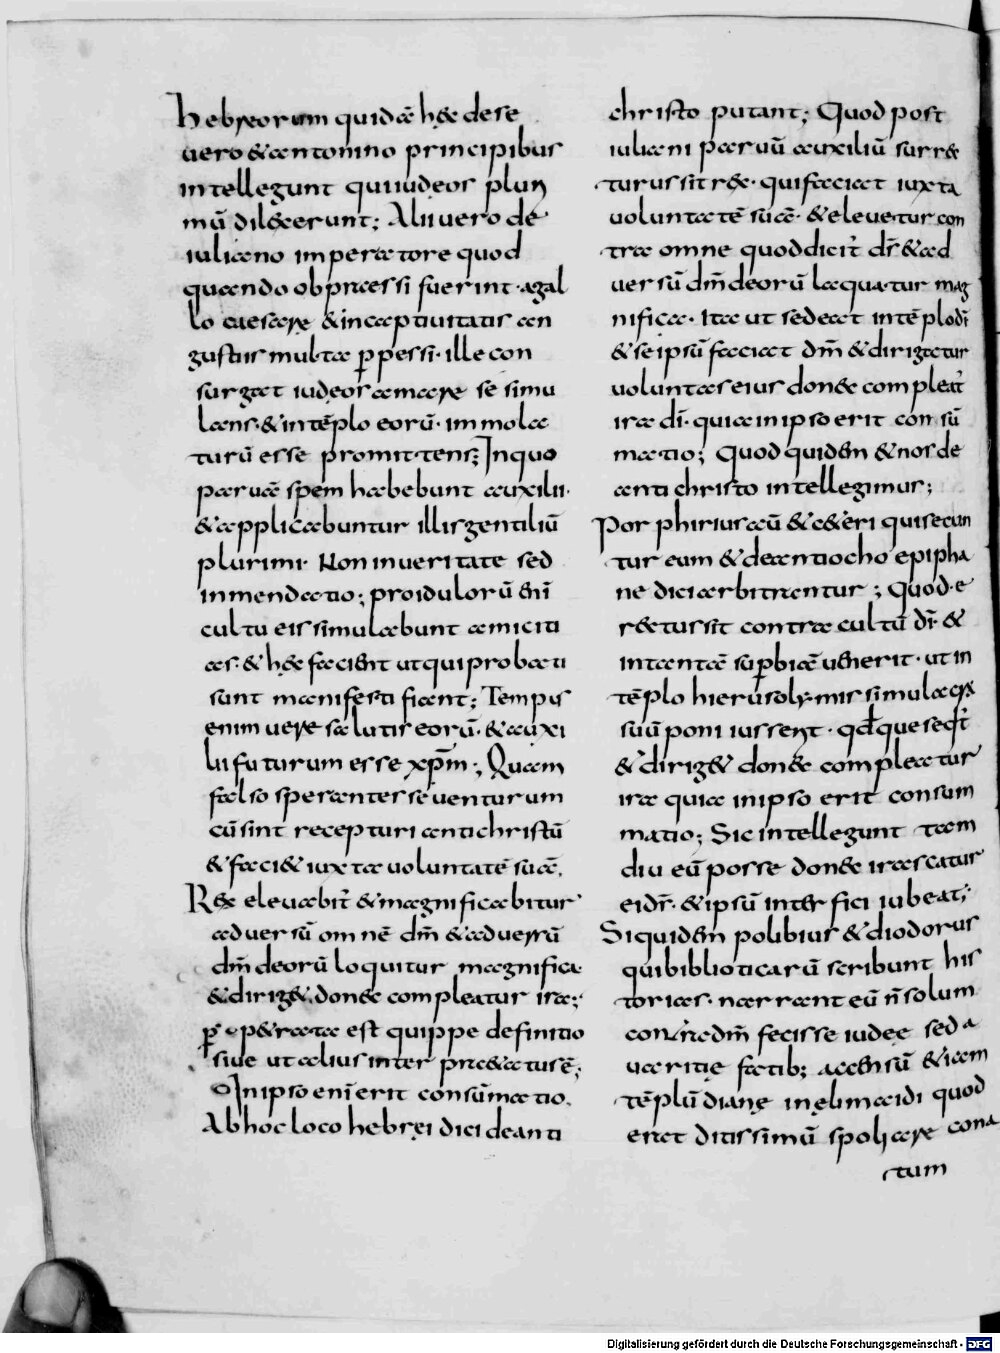 hebreorum quidā hęc de se
uero & antonino principibus
intellegunt qui iudeos pluri
mū dilexerunt; Alii uero de
iuliano imperatore quod
quando obpraessi fuerint a gal
lo caesare & in captiuitatis an
gustiis multa ꝑpessi· ille con
surgat iudeos amare se simu
lans· & in tēplo eorū· immola
turū esse promittens; In quo
paruā spem habebunt auxilii·
& applicabuntur illis gentiliū
plurimi· Non in ueritate sed
in mendatio; pro idulorū eni
cultu eis simulabunt amiciti
as· & hęc facient ut qui probati
sunt manifesti fiant; Tempus
enim uere salutis eorū· & auxi
lii futurum esse xp̄m; Quam
falso sperantes se uenturum
cū sint recepturi antichristū
& faci& iuxta uoluntatē suā.
Rex eleuabit̄ & magnificabitur
aduersū omnē dm̄ & aduersū
dm̄ deorū loquitur magnifica
& dirig& donec compleatur ira;
ꝑp&rata est quippe definitio
siue ut alius interpraetatus ē;
In ipso eni erit consūmatio.
Ab hoc loco hebręi dici de anti
christo putant; Quod post
iuliani paruū auxiliū surre
turus sit rex· qui faciat iuxta
uoluntatē suā· & eleuetur con
tra omne quod dicit̄ dr̄ & ad
uersū dm̄ deorū laquatur mag
nifica· Ita ut sedeat in tēplo dī
& se ipsū faciat dm̄ & dirigatur
uoluntas eius donec compleat̄
ira dī· quia in ipso erit consū
matio; Quod quidem & nos de
antichristo intellegimus;
Porphirius aū & c&eri qui secun
tur eum & de antiocho epipha
ne dici arbitrantur; Quod e
rectus sit contra cultū dī· &
in tantā suꝑbiā uenerit· ut in
tēplo hierusolymis simulacrū
suū poni iusserit· qd que seqt̄
& dirig& donec compleatur
ira quia in ipso erit consum
matio; Sic intellegunt tam
diu eū posse donec irascatur
ei dr̄· & ipsū interfici iubeat;
Siquidem polibius & diodorus
qui biblioticarū scribunt his
torias· narrant eū n̄ solum
contra dm̄ fecisse iudęę sed a
uaritię facib; accensū & iam
tēplū dianę in elimaidi quod
erat ditissimū spoliare cona
tum
Digitalisierung gefördert durch die Deutsche Forschungsgemeinschaft - DFG